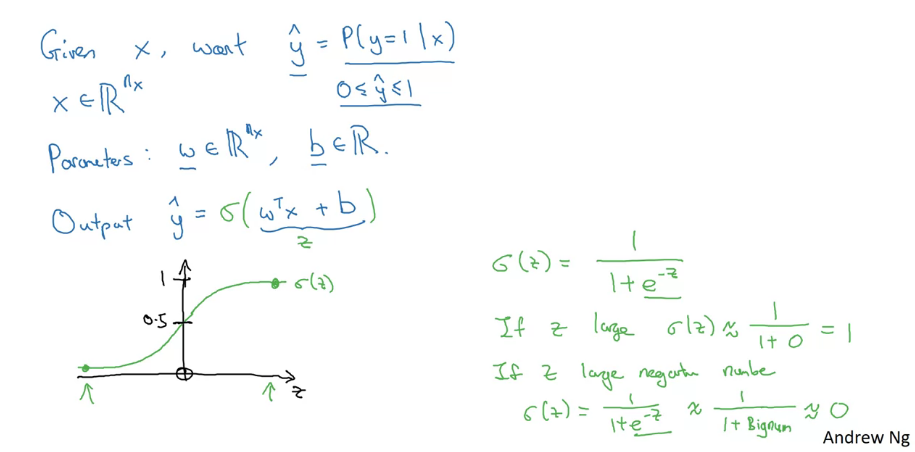 Given x, want ŷ = P(y=1|x)
x ∈ ℝⁿˣ 0 ≤ ŷ ≤ 1
Parameters: w ∈ ℝⁿˣ, b ∈ ℝ.
Output ŷ = σ(wᵀx + b)
z
1 σ(z)
0.5
z
σ(z) = 1 / (1 + e^(-z))
If z large σ(z) ≈ 1 / (1 + 0) = 1
If z large negative number
σ(z) = 1 / (1 + e^(-z)) ≈ 1 / (1 + Bignum) ≈ 0
Andrew Ng